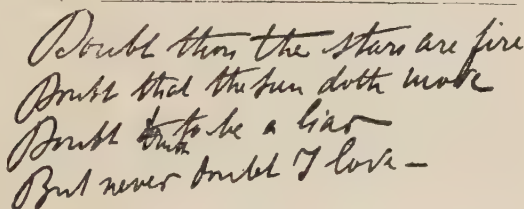 Doubt thou the stars are fire
Doubt that the sun doth move
Doubt truth to be a liar
But never doubt I love –